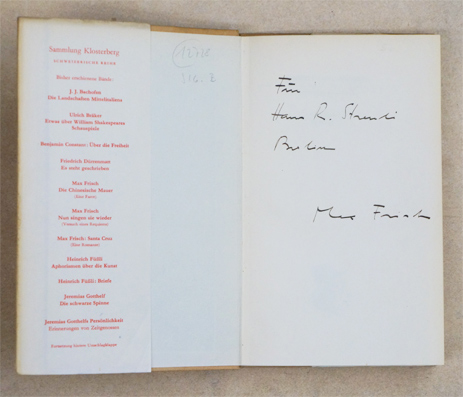 Sammlung Klosterberg
SCHWEIZERISCHE REIHE
Bisher erschienene Bände:
J. J. Bachofen
Die Landschaften Mittelitaliens
Ulrich Bräker
Etwas über William Shakespeares
Schauspiele
Benjamin Constant: Über die Freiheit
Friedrich Dürrenmatt
Es steht geschrieben
Max Frisch
Die Chinesische Mauer
(Eine Farce)
Max Frisch
Nun singen sie wieder
(Versuch eines Requiems)
Max Frisch: Santa Cruz
(Eine Romanze)
Heinrich Füßli
Aphorismen über die Kunst
Heinrich Füßli: Briefe
Jeremias Gotthelf
Die schwarze Spinne
Jeremias Gotthelfs Persönlichkeit
Erinnerungen von Zeitgenossen
Fortsetzung hintere
Für
Hans R.
Max Frisch